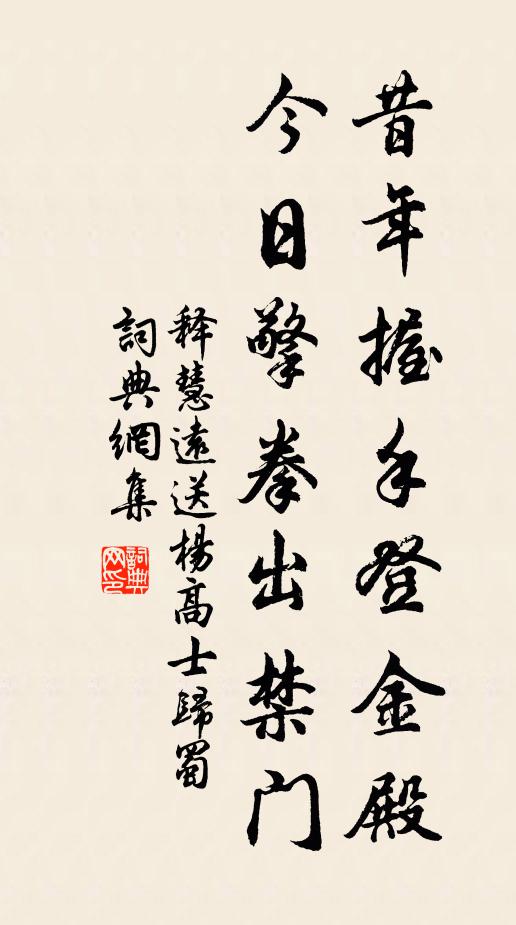 昔年握手登金殿
今日擎拳出禁门
释慧遠送楊高士歸蜀
詞典網集
詞典网印